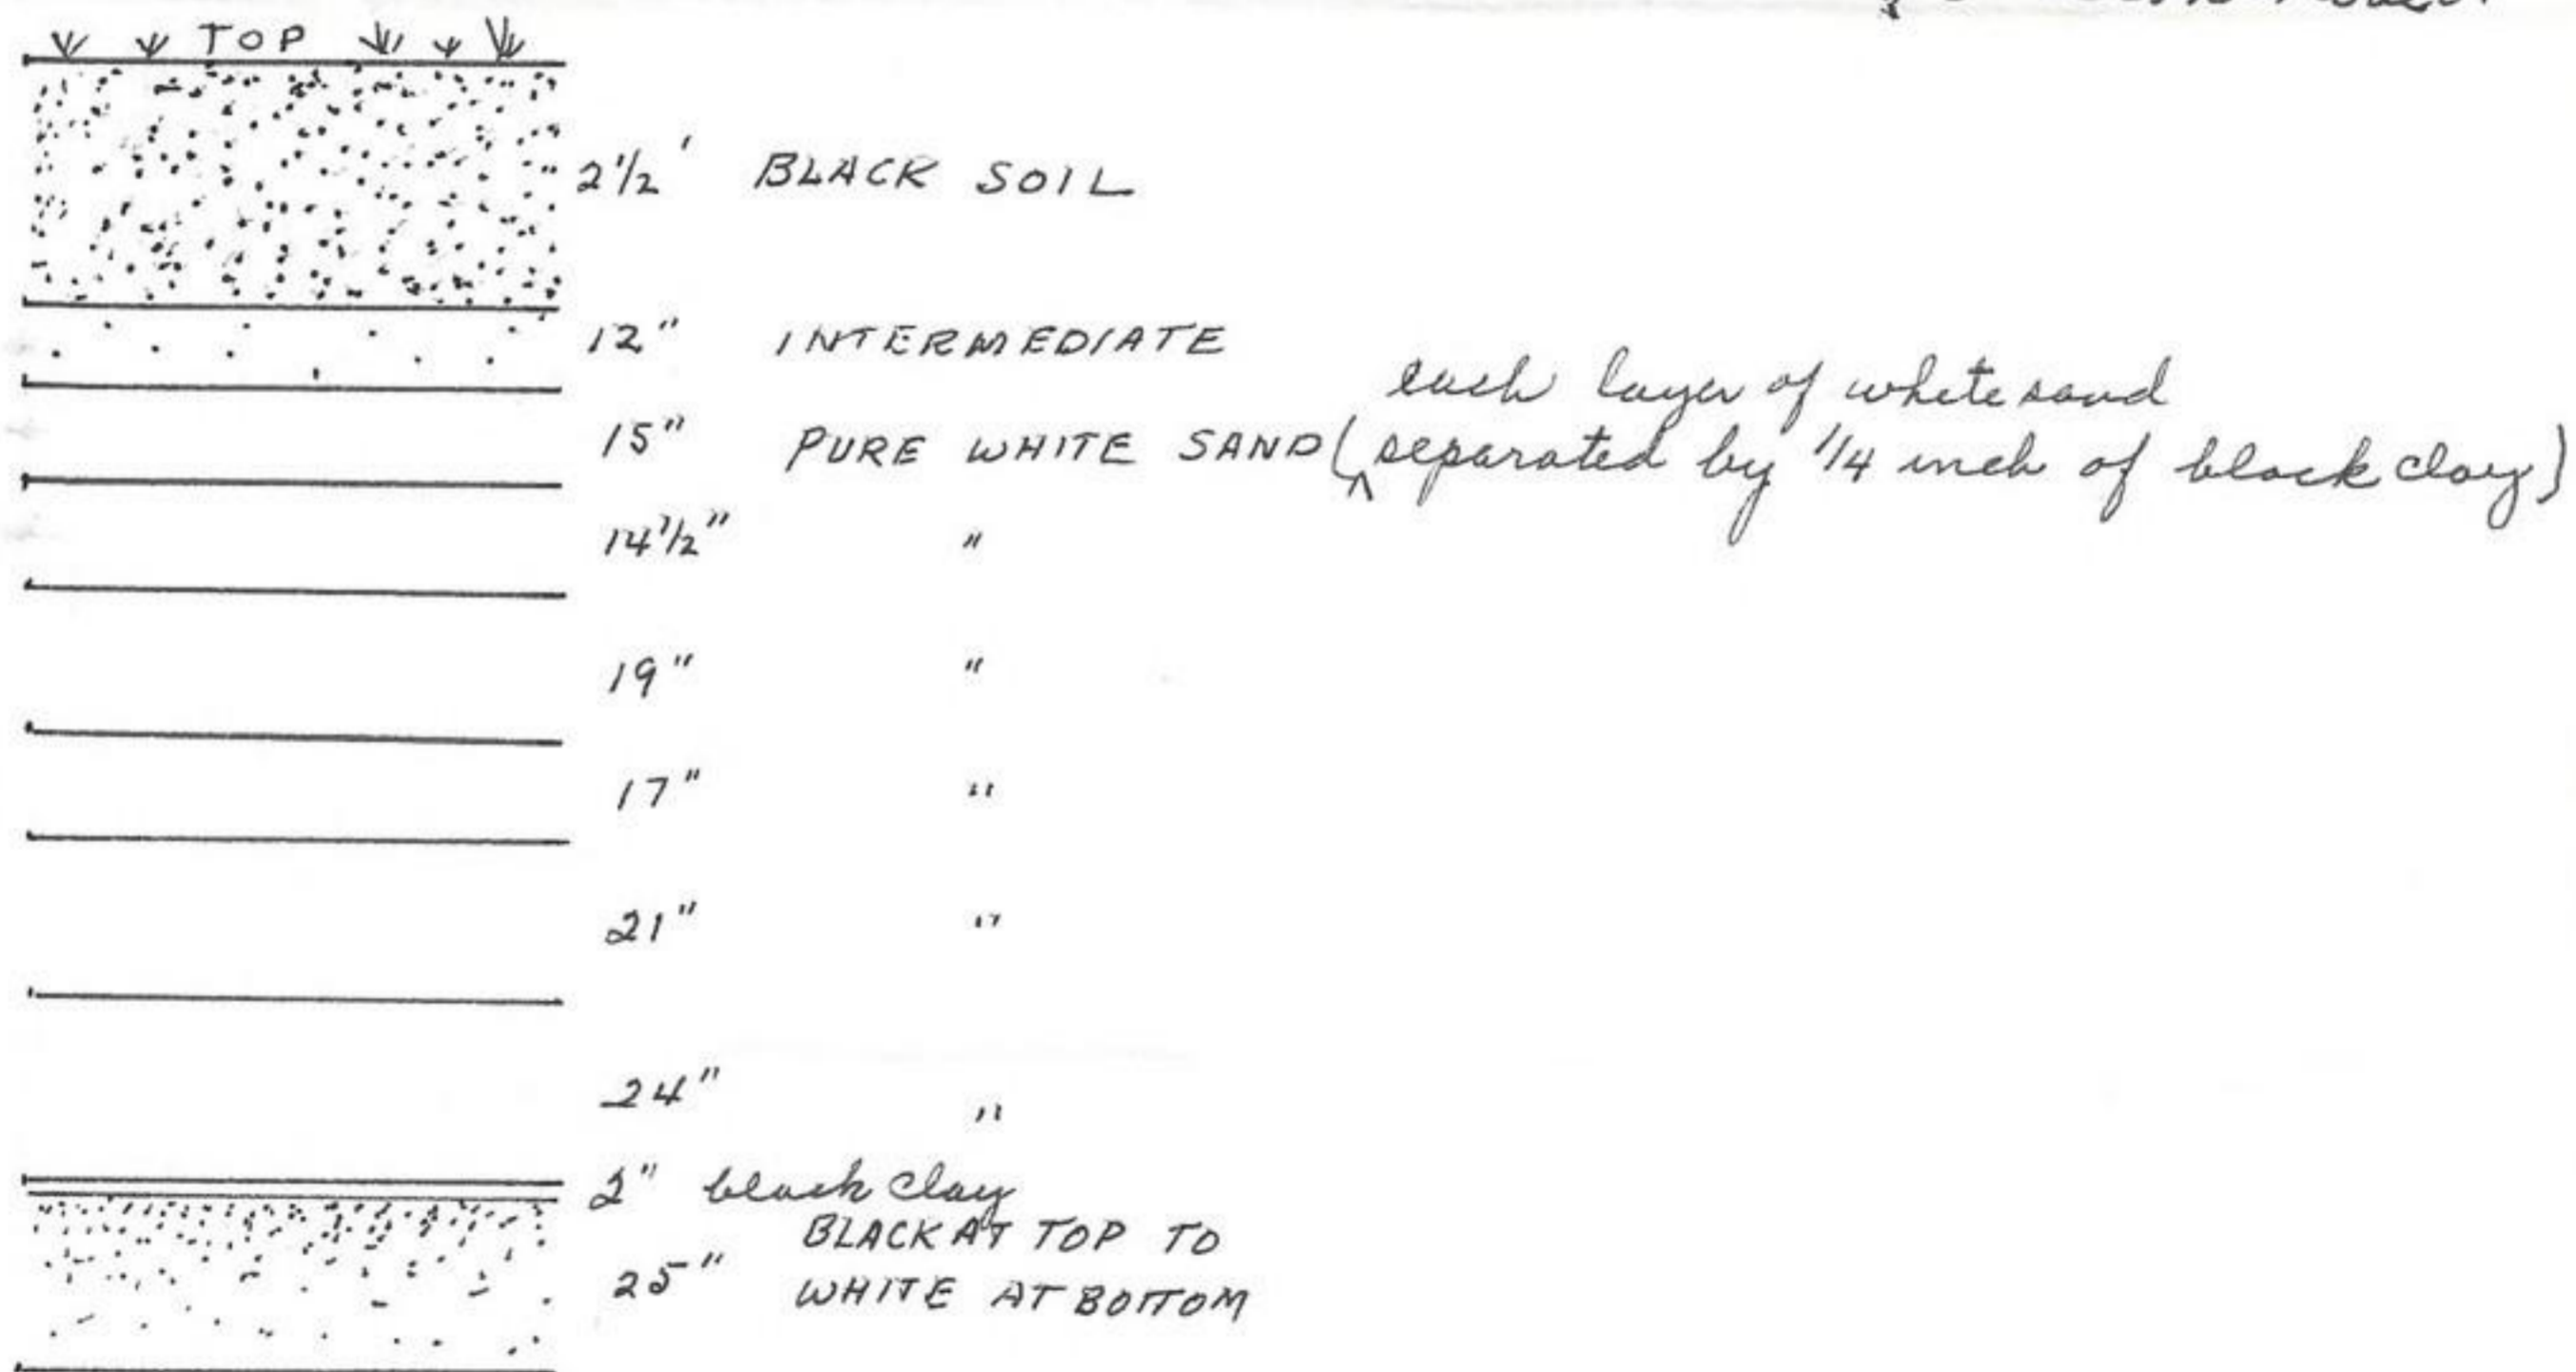 TOP
2 1/2' BLACK SOIL
12" INTERMEDIATE
each layer of white sand
15" PURE WHITE SAND (^ separated by 1/4 inch of black clay)
14 1/2" "
19" "
17" "
21" "
24" "
2" black clay
BLACK AT TOP TO
25" WHITE AT BOTTOM